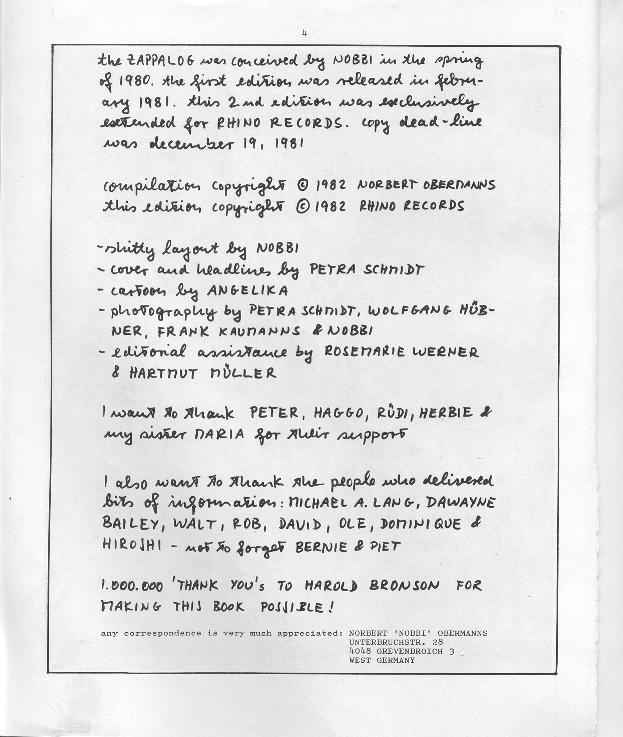 4
the ZAPPALOG was conceived by NOBBI in the spring
of 1980. the first edition was released in febru-
ary 1981. this 2nd edition was exclusively
extended for RHINO RECORDS. copy dead-line
was december 19, 1981
compilation copyright © 1982 NORBERT OBERMANNS
this edition copyright © 1982 RHINO RECORDS
-shitty layout by NOBBI
- cover and headlines by PETRA SCHMIDT
- cartoon by ANGELIKA
- photography by PETRA SCHMIDT, WOLFGANG HÜB-
NER, FRANK KAUMANNS & NOBBI
- editorial assistance by ROSEMARIE WERNER
& HARTMUT MÜLLER
I want to thank PETER, HAGGO, RÜDI, HERBIE &
my sister MARIA for their support
I also want to thank the people who delivered
bits of information: MICHAEL A. LANG, DAWAYNE
BAILEY, WALT, ROB, DAVID, OLE, DOMINIQUE &
HIROSHI - not to forget BERNIE & PIET
1.000.000 'THANK YOU's TO HAROLD BRONSON FOR
MAKING THIS BOOK POSSIBLE!
any correspondence is very much appreciated: NORBERT "NOBBI" OBERMANNS
UNTERBRUCHSTR. 28
4048 GREVENBROICH 3
WEST GERMANY